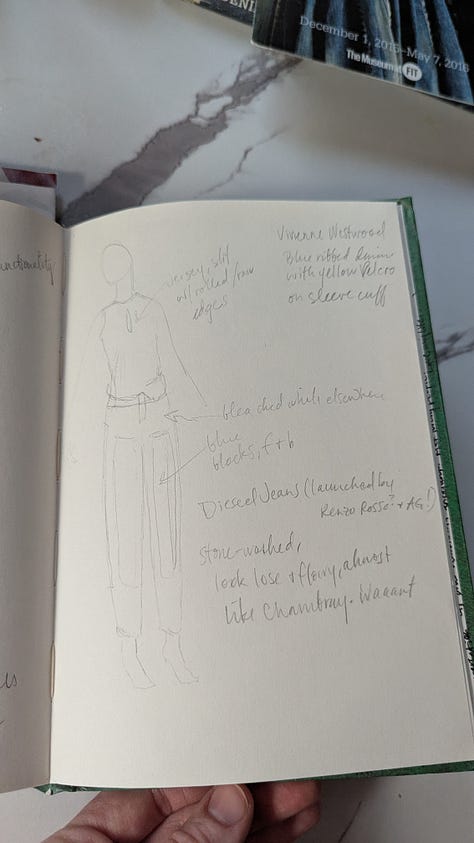 December 1, 2015–May 7, 2016
The Museum at FIT
unctionality
Vivienne Westwood
Blue ribbed denim
with yellow velcro
on sleeve cuff
Jersey, slit
w/ rolled/raw
edges
bleached white elsewhere
blue
blocks, f + b
Diesel Jeans (launched by
Renzo Rosso? + AG!)
Stone-washed,
look lose + flowy, almost
like Chambray. Waaant